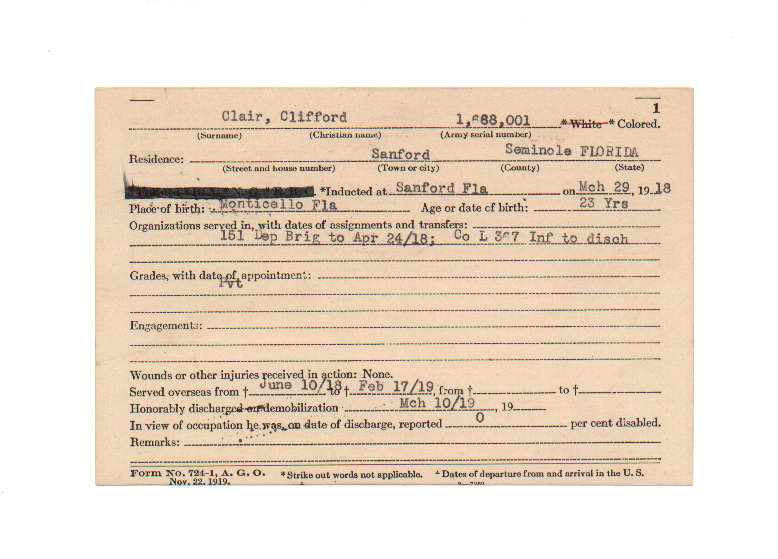 1
Clair, Clifford 1,688,001 *White *Colored.
(Surname) (Christian name) (Army serial number)
Residence: Sanford Seminole FLORIDA
(Street and house number) (Town or city) (County) (State)
*Inducted at Sanford Fla on Mch 29, 1918
Place of birth: Monticello Fla Age or date of birth: 23 Yrs
Organizations served in, with dates of assignments and transfers:
151 Dep Brig to Apr 24/18; Co L 367 Inf to disch
Grades, with date of appointment:
Pvt
Engagements:
Wounds or other injuries received in action: None.
Served overseas from † June 10/18 to † Feb 17/19, from † to †
Honorably discharged on demobilization Mch 10/19, 19
In view of occupation he was, on date of discharge, reported 0 per cent disabled.
Remarks:
Form No. 724-1, A. G. O. *Strike out words not applicable. Dates of departure from and arrival in the U. S.
Nov. 22, 1919.